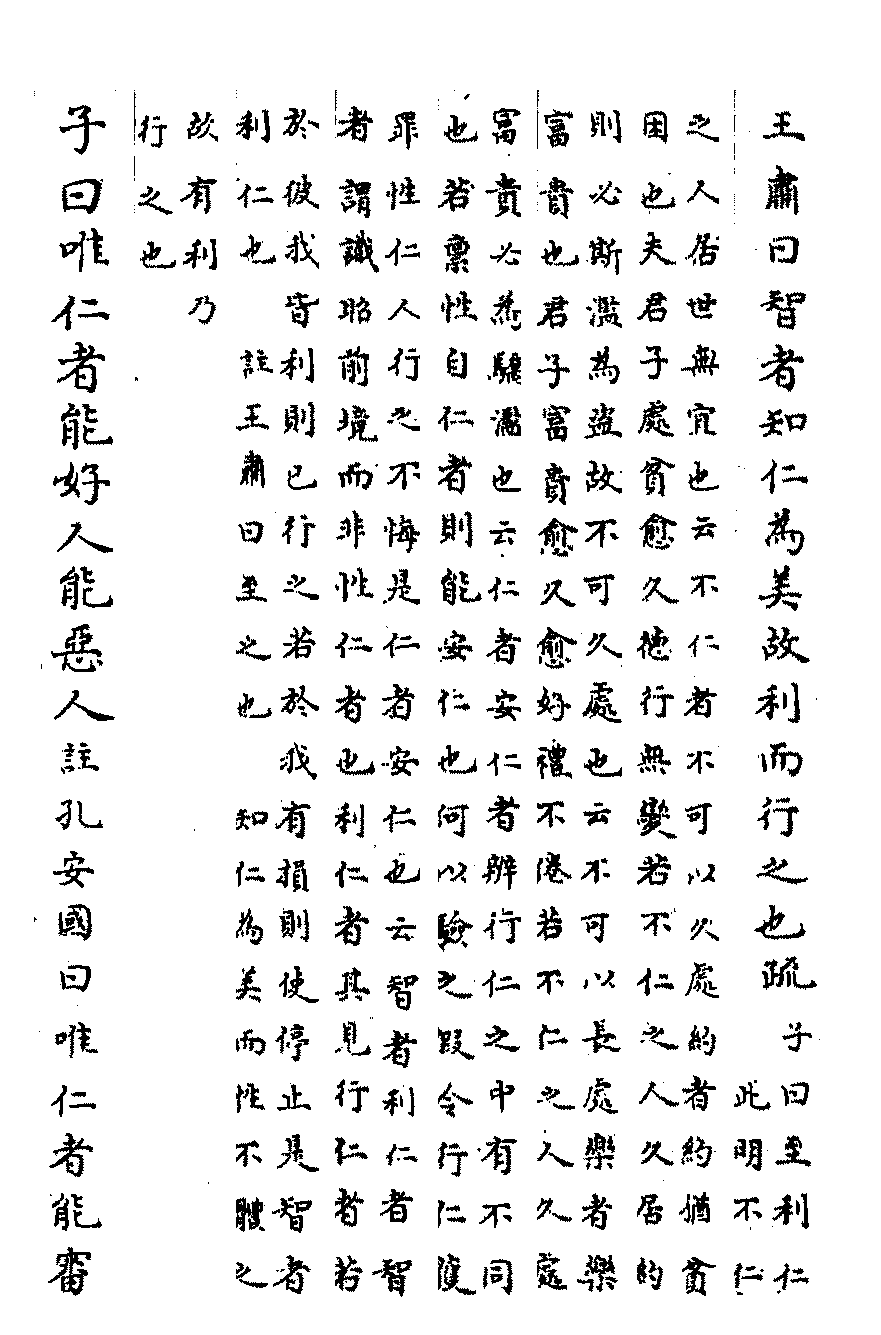 王肅曰智者知仁為美故利而行之也疏
子曰至利仁
此明不仁
之人居世無宜也云不仁者不可以久處約者約猶貧
困也夫君子處貧愈久德行無變若不仁之人久居約
則必斯濫為盜故不可久處也云不可以長處樂者樂
富貴也君子富貴愈久愈好禮不倦若不仁之人久處
富貴必為驕濫也云仁者安仁者辨行仁之中有不同
也若稟性自仁者則能安仁也何以驗之叚令行仁獲
罪性仁人行之不悔是仁者安仁也云智者利仁者智
者謂識昭前境而非性仁者也利仁者其見行仁者若
於彼我皆利則己行之若於我有損則使停止是智者
利仁也 註王肅曰至之也 知仁為美而性不體之
故有利乃
行之也
子曰唯仁者能好人能惡人註孔安國曰唯仁者能審